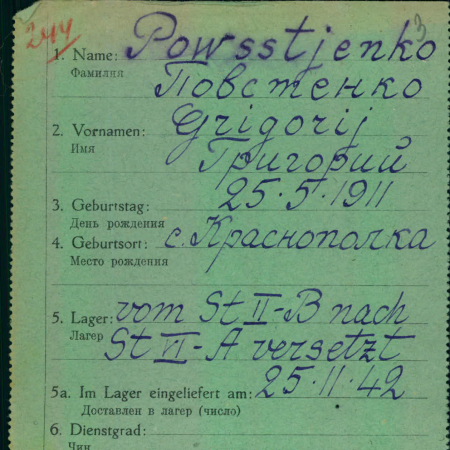 244
3
1. Name: Powsstjenko
Фамилия Повстенко
2. Vornamen: Grigorij
Имя Григорий
3. Geburtstag: 25.5.1911
День рождения
4. Geburtsort: с. Краснополка
Место рождения
5. Lager: vom St II-B nach
Лагер St VI-A versetzt
5a. Im Lager eingeliefert am: 25.11.42
Доставлен в лагер (число)
6. Dienstgrad:
Чин